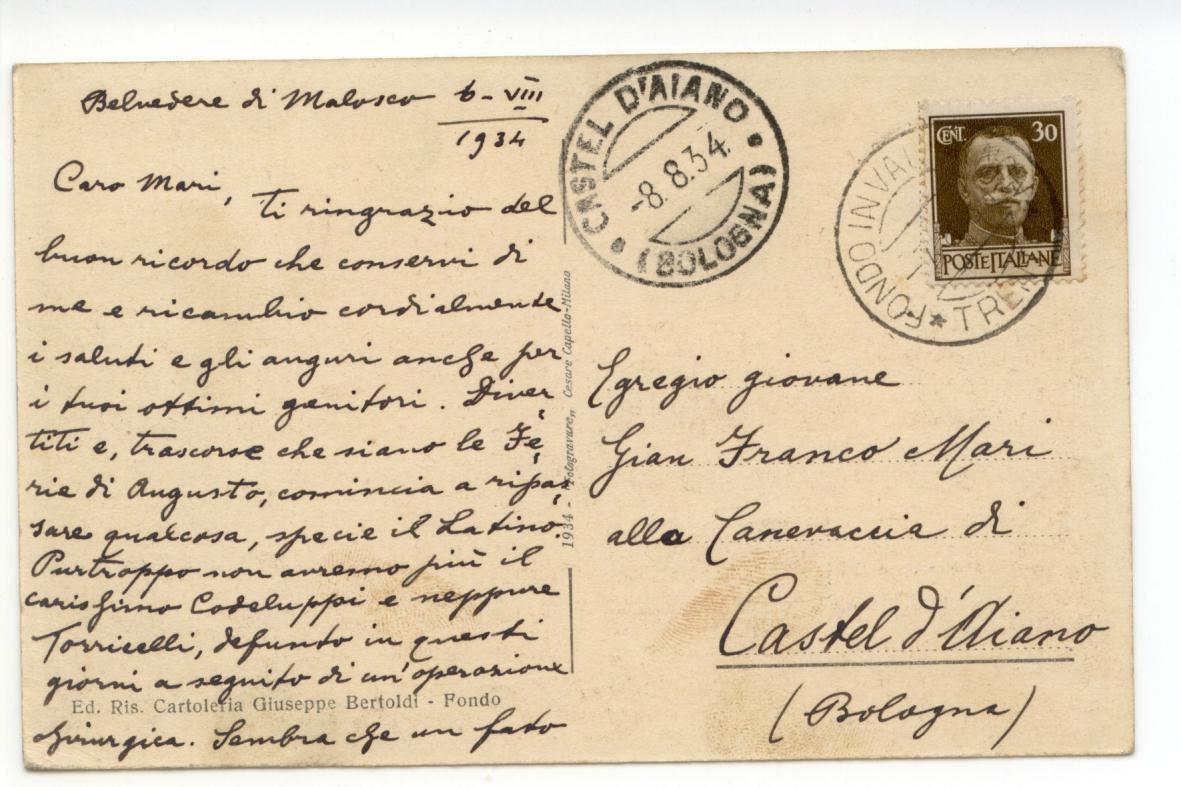 Belvedere di Malosco 6-VIII
1934
Caro Mari,
ti ringrazio del
buon ricordo che conservi di
me e ricambio cordialmente
i saluti e gli auguri anche per
i tuoi ottimi genitori. Diver-
titi e, trascorse che siano le Fe-
rie di Augusto, comincia a ripas-
sare qualcosa, specie il Latino.
Purtroppo non avremo più il
carissimo Codeluppi e neppure
Torricelli, defunto in questi
giorni a seguito di un'operazione
Ed. Ris. Cartoleria Giuseppe Bertoldi - Fondo
chirurgica. Sembra che un fato
CASTEL D'AIANO
-8.8.34.
(BOLOGNA)
1934 - "Fotogravure" Cesare Capello-Milano
FONDO (N VAL
TREN
CENT. 30
POSTE ITALIANE
Egregio giovane
Gian Franco Mari
alla Canevaccia di
Castel d'Aiano
(Bologna)